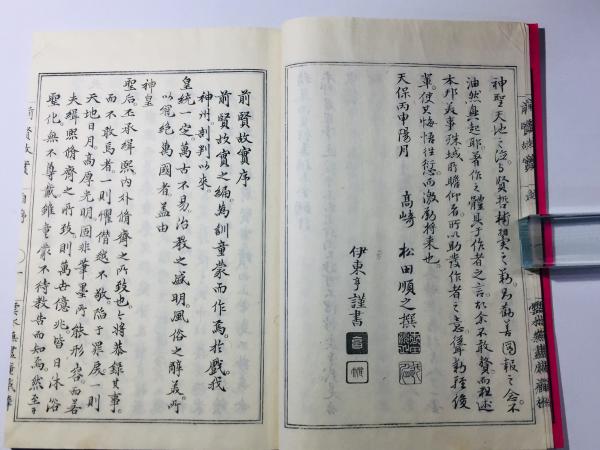 神聖天地之
賢哲
勸善圖報之念不
油然興起耶著作之體具于作者之言故余不敢贅而粗述
本邦美事殊域所瞻仰者所以助發作者之
輩使其悔悟往愆而激勵將來也
天保丙申陽月
高﨑 松田順之撰
伊東亨謹書
前賢故實序
前賢故實之編為訓童蒙而作焉於戲我
神州剖判以來
皇統一定萬古不易治教之盛明風俗之醇美所
以冠絕萬國者蓋由
神皇
聖后丕承緝熙內外脩齊之所致也今將恭錄其事
而不敢焉者一則懼僭越不敬陷于罪戾一則
天地日月高厚光明固非筆墨所能形容而若
夫緝熙脩齊之所致則萬世億兆皆日沐浴
聖化無不尊戴雖童蒙不待教告而知焉然至于
前賢故實
自序
一